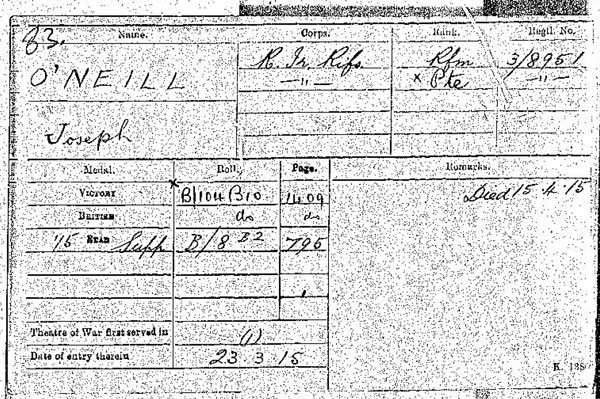 83. Name. Corps. Rank. Regtl. No.
O'NEILL R. Ir. Rifs. Rfm 3/8951
—"— × Pte —"—
Joseph
Medal. Roll. Page. Remarks.
VICTORY × B/104 B10 1409 Died 15 4 15
BRITISH do do
15 STAR Supp B/8 B2 795
Theatre of War first served in (1)
Date of entry therein 23 3 15
K. 1380